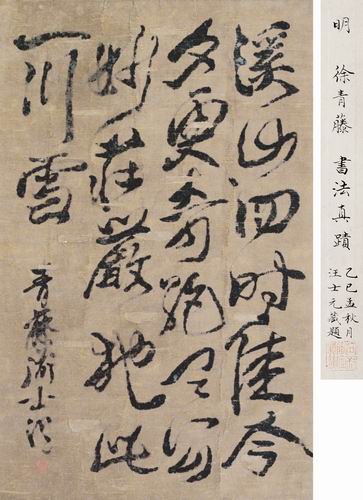 明 徐青藤 書法真蹟
乙巳孟秋月
汪士元藏題
溪山四時佳今
夕更奇絕天公
妙莊嚴施此
一川雪
青藤道士渭